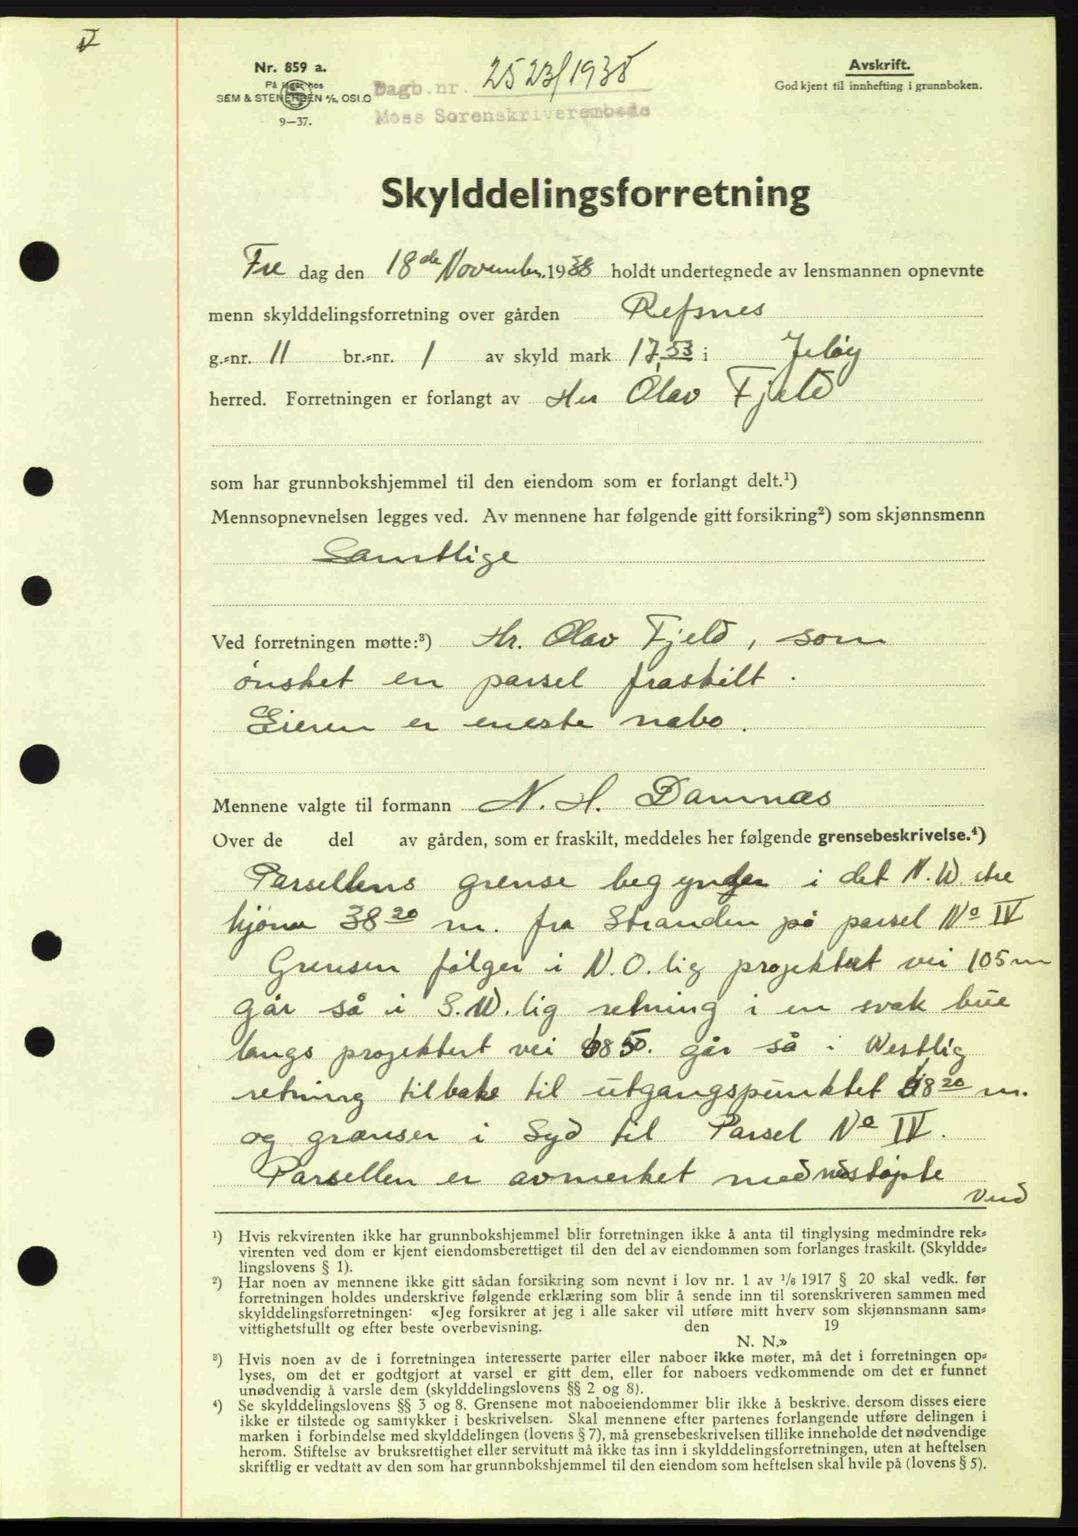 V
Nr. 859 a.
På lager hos
SEM & STENERSEN A/S, OSLO
9—37.
Dagb.nr. 2523/1938
Moss Sorenskriverembede
Avskrift.
Godkjent til innhefting i grunnboken.
Skylddelingsforretning
Fre dag den 18de November 1938 holdt undertegnede av lensmannen opnevnte
menn skylddelingsforretning over gården Refsnes
g.-nr. 11 br.-nr. 1 av skyld mark 17,53 i Jeløy
herred. Forretningen er forlangt av Her Olav Fjeld
som har grunnbokshjemmel til den eiendom som er forlangt delt.¹)
Mennsopnevnelsen legges ved. Av mennene har følgende gitt forsikring²) som skjønnsmenn
Samtlige
Ved forretningen møtte:³) Hr. Olav Fjeld, som
ønsket en parsel fraskilt.
Eieren er eneste nabo.
Mennene valgte til formann N. H. Damnæs
Over de del av gården, som er fraskilt, meddeles her følgende grensebeskrivelse.⁴)
Parsellens grense begynder i det N.W. stre
hjørne 38 20 m. fra Stranden på parsel No IV
Grensen følger i N.O.lig projektert vei 105 m
går så i S.W.lig retning i en svak bue
langs projektert vei 68 50. går så i Westlig
retning tilbake til utgangspunktet 68 20 m.
og grænser i Syd til Parsel No IV.
Parsellen er avmerket med nedstøpte
Vend
¹) Hvis rekvirenten ikke har grunnbokshjemmel blir forretningen ikke å anta til tinglysing medmindre rek-
virenten ved dom er kjent eiendomsberettiget til den del av eiendommen som forlanges fraskilt. (Skyldde-
lingslovens § 1).
²) Har noen av mennene ikke gitt sådan forsikring som nevnt i lov nr. 1 av 1/6 1917 § 20 skal vedk. før
forretningen holdes underskrive følgende erklæring som blir å sende inn til sorenskriveren sammen med
skylddelingsforretningen: «Jeg forsikrer at jeg i alle saker vil utføre mitt hverv som skjønnsmann sam-
vittighetsfullt og efter beste overbevisning. den 19
N. N.»
³) Hvis noen av de i forretningen interesserte parter eller naboer ikke møter, må det i forretningen op-
lyses, om det er godtgjort at varsel er gitt dem, eller for naboers vedkommende om det er funnet
unødvendig å varsle dem (skylddelingslovens §§ 2 og 8).
⁴) Se skylddelingslovens §§ 3 og 8. Grensene mot naboeiendommer blir ikke å beskrive, dersom disses eiere
ikke er tilstede og samtykker i beskrivelsen. Skal mennene efter partenes forlangende utføre delingen i
marken i forbindelse med skylddelingen (lovens § 7), må grensebeskrivelsen tillike inneholde det nødvendige
herom. Stiftelse av bruksrettighet eller servitutt må ikke tas inn i skylddelingsforretningen, uten at heftelsen
skriftlig er vedtatt av den som har grunnbokshjemmel til den eiendom som heftelsen skal hvile på (lovens § 5).